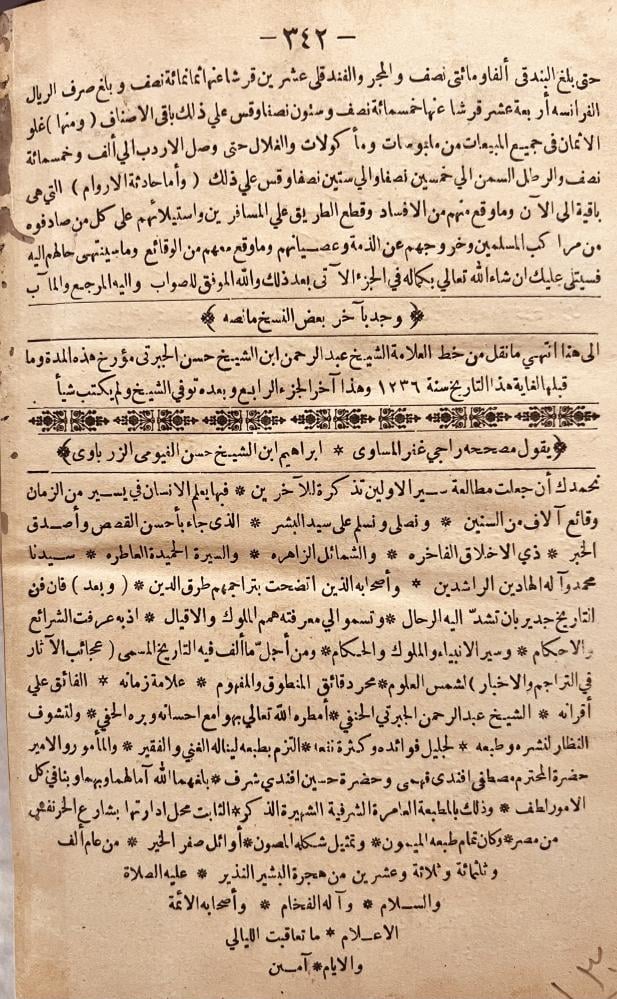 — ٣٤٢ —
حتى بلغ البندقى ألفا ومائتى نصف والمجر والفندقلى عشرين قرشا عنها ثمانمائة نصف وبلغ صرف الريال
الفرانسه أربعة عشر قرشا عنها خمسمائة نصف وستون نصفا وقس على ذلك باقى الاصناف (ومنها) غلو
الاثمان فى جميع المبيعات من ملبوسات ومأكولات والغلال حتى وصل الاردب الى ألف وخمسمائة
نصف والرطل السمن الى خمسين نصفا والى ستين نصفا وقس على ذلك (وأما حادثة الاروام) التى هى
باقية الى الآن وما وقع منهم من الافساد وقطع الطريق على المسافرين واستيلائهم على كل من صادفوه
من مراكب المسلمين وخروجهم عن الذمة وعصيانهم وما وقع معهم من الوقائع وما سينتهى حالهم اليه
فسيتلى عليك ان شاء الله تعالى بكماله فى الجزء الآتى بعد ذلك والله الموفق للصواب واليه المرجع والمآب
﴿ وجد بآخر بعض النسخ مانصه ﴾
الى هنا انتهى ما نقل من خط العلامة الشيخ عبد الرحمن ابن الشيخ حسن الجبرتى مؤرخ هذه المدة وما
قبلها لغاية هذا التاريخ سنة ١٢٣٦ وهذا آخر الجزء الرابع وبعده توفى الشيخ ولم يكتب شيأ
﴿يقول مصححه راجى غفر المساوى * ابراهيم ابن الشيخ حسن الفيومى الزرباوى﴾
نحمدك أن جعلت مطالعة سير الاولين تذكرة للآخرين * فبها يعلم الانسان فى يسير من الزمان
وقائع آلاف من السنين * ونصلى ونسلم على سيد البشر * الذى جاء بأحسن القصص وأصدق
الخبر * ذى الاخلاق الفاخره * والشمائل الزاهره * والسيرة الحميدة العاطره * سيدنا
محمد وآله الهادين الراشدين * وأصحابه الذين اتضحت بتراجمهم طرق الدين * (وبعد) فان فن
التاريخ جدير بان تشدّ اليه الرحال * وتسمو الى معرفته همم الملوك والاقيال * اذ به عرفت الشرائع
والاحكام * وسير الانبياء والملوك والحكام * ومن أجلّ ما ألف فيه التاريخ المسمى (عجائب الآثار
فى التراجم والاخبار) لشمس العلوم * محرر دقائق المنطوق والمفهوم * علامة زمانه * الفائق على
أقرانه * الشيخ عبد الرحمن الجبرتى الحنفى * أمطره الله تعالى بهوامع احسانه وبره الحفى * ولتشوف
النظار لنشره وطبعه * لجليل فوائده وكثرة نفعه * التزم بطبعه ليناله الغنى والفقير * والمأمور والامير
حضرة المحترم مصطفى افندى فهمى وحضرة حسين افندى شرف * بلغهما الله آمالهما وبهما وبنا فى كل
الامور لطف * وذلك بالمطبعة العامرة الشرفية الشهيرة الذكر * الثابت محل ادارتها بشارع الخرنفش
من مصر * وكان تمام طبعه الميمون * وتمثيل شكله المصون * أوائل صفر الخير * من عام ألف
وثلثمائة وثلاثة وعشرين من هجرة البشير النذير * عليه الصلاة
والسلام * وآله الفخام * وأصحابه الأئمة
الاعلام * ما تعاقبت الليالى
والايام * آمين